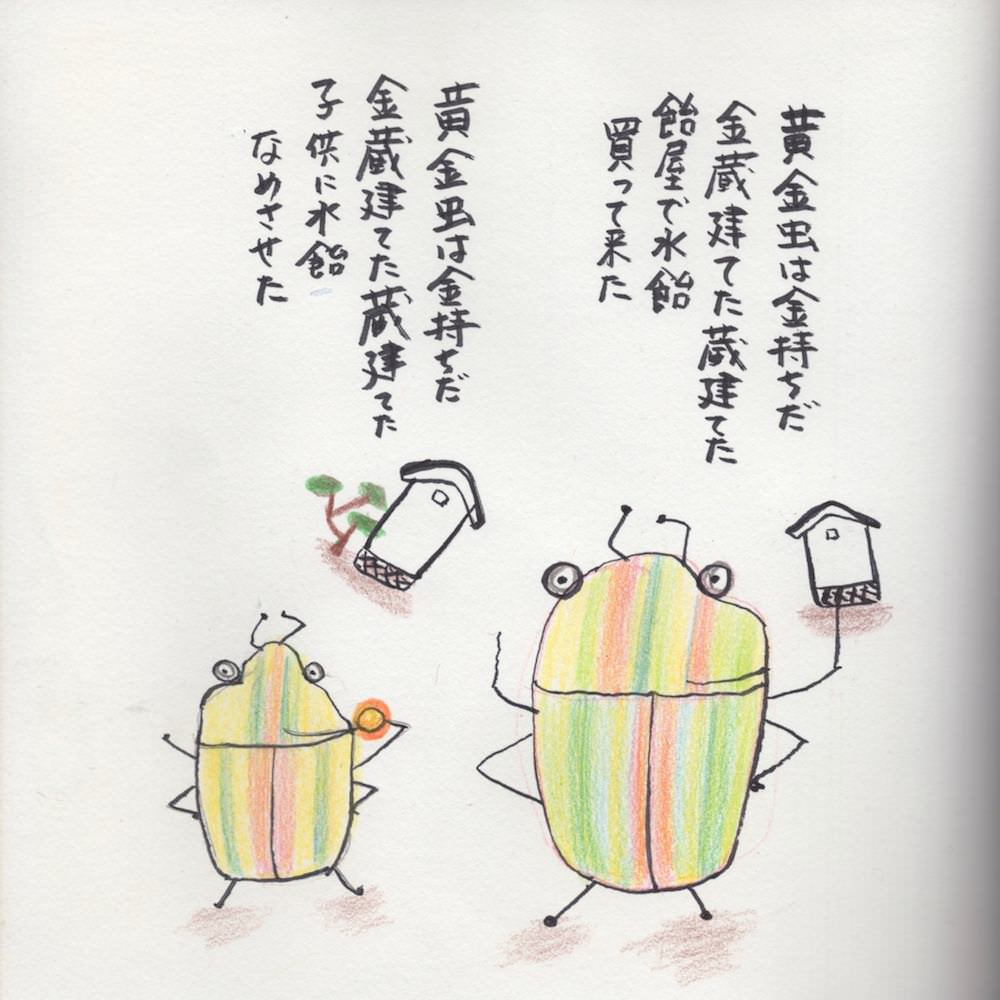 黄金虫は金持ちだ
金蔵建てた蔵建てた
飴屋で水飴
買って来た
黄金虫は金持ちだ
金蔵建てた蔵建てた
子供に水飴
なめさせた